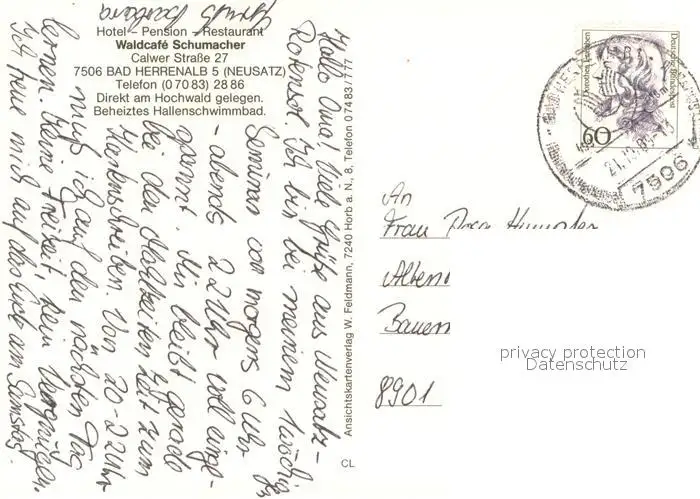 Hotel – Pension – Restaurant
Waldcafé Schumacher
Calwer Straße 27
7506 BAD HERRENALB 5 (NEUSATZ)
Telefon (0 70 83) 28 86
Direkt am Hochwald gelegen.
Beheiztes Hallenschwimmbad.
Hallo Oma! Viele Grüße aus Neusatz-
Rotensol. Ich bin bei meinem
Seminar von morgens 6 Uhr
- abends 22 Uhr voll einge-
spannt. Mir bleibt gerade
bei den Mahlzeiten Zeit zum
Kartenschreiben. Von 20-22 Uhr
muß ich auf den nächsten Tag
lernen. Keine Freizeit, kein Vergnügen.
Ich freue mich auf das Eück am Samstag.
Gruß Barbara
Ansichtskartenverlag W. Feldmann, 7240 Horb a. N., 8, Telefon 0 74 83 / 7 77
CL
Deutsche Bundespost
60
7506
An
Frau Rosa
Bauern
8901
privacy protection
Datenschutz